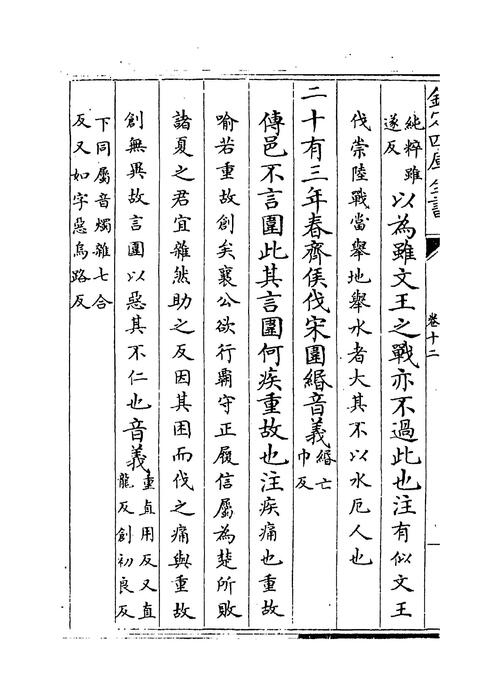 欽定四庫全書
卷十二
純粹雖
遂反
以為雖文王之戰亦不過此也注有似文王
伐崇陸戰當舉地舉水者大其不以水厄人也
二十有三年春齊侯伐宋圍緡音義
緡亡
巾反
傳邑不言圍此其言圍何疾重故也注疾痛也重故
喻若重故創矣襄公欲行霸守正履信屬為楚所敗
諸夏之君宜雜然助之反因其困而伐之痛與重故
創無異故言圍以惡其不仁也音義
重直用反又直
龍反創初良反
下同屬音燭雜七合
反又如字惡烏路反